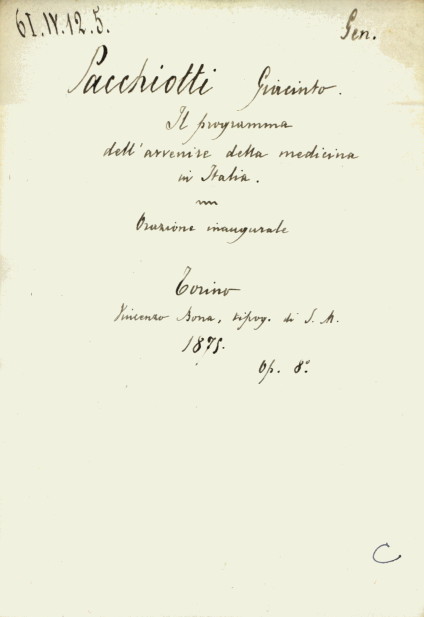 61.IV.12.5.
Gen.
Pacchiotti Giacinto.
Il programma
dell'avvenire della medicina
in Italia.
Orazione inaugurale
Torino
Vincenzo Bona, tipog. di S. M.
1875.
Op. 8°
C